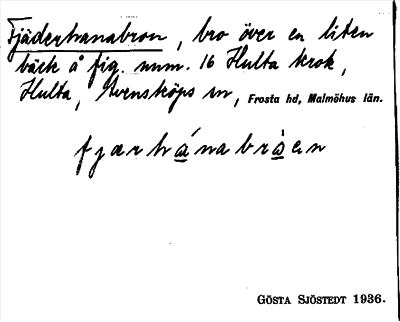 Fjädertranabron, bro över en liten
bäck å fig. num. 16 Hulta krok,
Hulta, Svensköps sn, Frosta hd, Malmöhus län.
fjærtránabrån
GÖSTA SJÖSTEDT 1936.